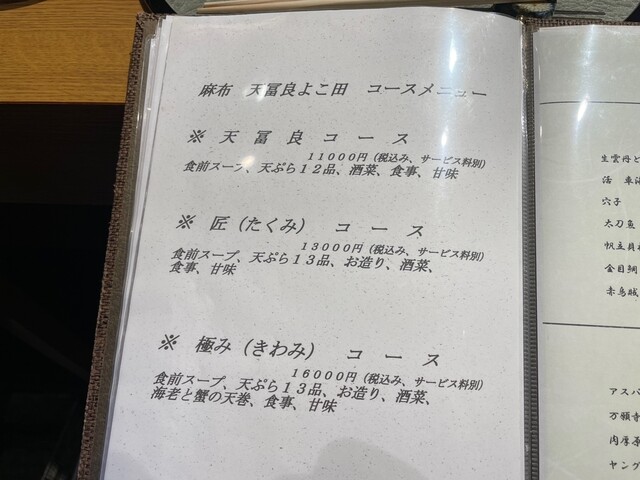 麻布　天冨良よこ田　コースメニュー
※　天　冨　良　コ　ー　ス
１１０００円（税込み、サービス料別）
食前スープ、天ぷら１２品、酒菜、食事、甘味
※　匠（たくみ）　コ　ー　ス
１３０００円（税込み、サービス料別）
食前スープ、天ぷら１３品、お造り、酒菜、
食事、甘味
※　極み（きわみ）　コ　ー　ス
１６０００円（税込み、サービス料別）
食前スープ、天ぷら１３品、お造り、酒菜、
海老と蟹の天巻、食事、甘味
生雲丹と
活　車海
穴子
太刀魚
帆立貝
金目鯛
赤烏賊
アスパ
万願寺
肉厚原
ヤング